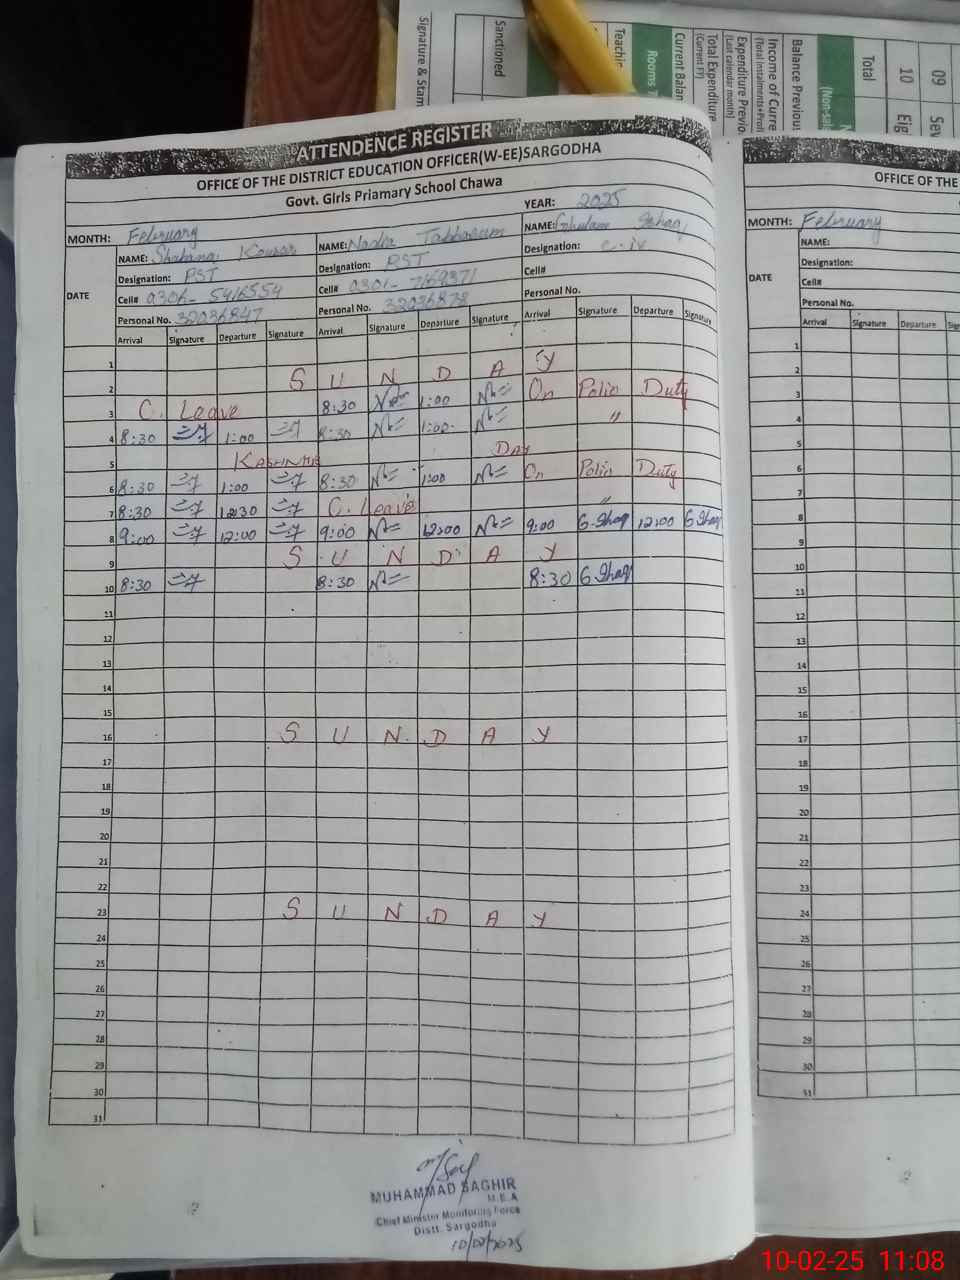 Signature & Stam
Sanctioned
Teachin
Rooms T
Current Balan
Total Expenditure
(Current FY)
Expenditure Previo
(Last calendar month)
Income of Curre
(Total Instalments+Profi
Balance Previous
(Non-sal
Total
10
Eig
09
Sev
ATTENDENCE REGISTER
OFFICE OF THE DISTRICT EDUCATION OFFICER(W-EE)SARGODHA
Govt. Girls Priamary School Chawa
YEAR: 2025
MONTH: February
NAME: Shabana Kousar NAME: Nadia Tabbasum NAME: Ghulam Ishaq
Designation: PST Designation: PST Designation: C-iv
DATE Cell# 0306-5416554 Cell# 0301-7169371 Cell#
Personal No. 32036847 Personal No. 32036878 Personal No.
Arrival Signature Departure Signature Arrival Signature Departure Signature Arrival Signature Departure Signature
1
2 S U N D A Y
3 C. Leave 8:30 1:00 On Polio Duty
4 8:30 1:00 8:30 1:00 "
5 KASHMIR DAY
6 8:30 1:00 8:30 1:00 On Polio Duty
7 8:30 12:30 C. Leave "
8 9:00 12:00 9:00 12:00 9:00 G.Ishaq 12:00 G Ishaq
9 S U N D A Y
10 8:30 8:30 8:30 G Ishaq
11
12
13
14
15
16 S U N D A Y
17
18
19
20
21
22
23 S U N D A Y
24
25
26
27
28
29
30
31
MUHAMMAD SAGHIR
M.E.A
Chief Minister Monitoring Force
Distt. Sargodha
10/02/2025
OFFICE OF THE
MONTH: February
NAME:
Designation:
DATE Cell#
Personal No.
Arrival Signature Departure Sig
1
2
3
4
5
6
7
8
9
10
11
12
13
14
15
16
17
18
19
20
21
22
23
24
25
26
27
28
29
30
31
10-02-25 11:08